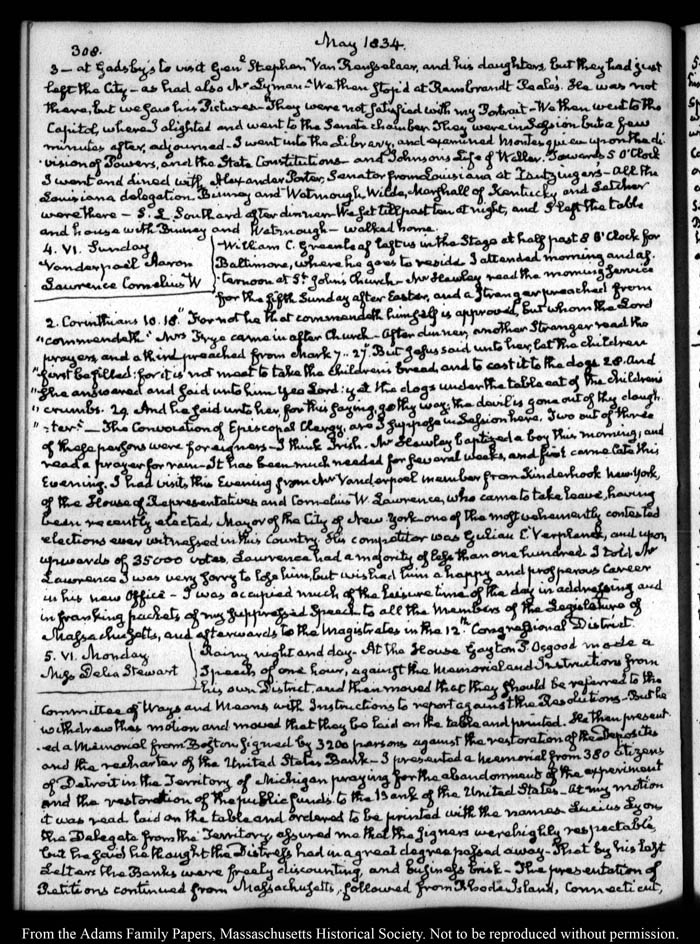 308.
May 1834.
3 – at Gadsby's to visit Gen.l Stephen Van Rensselaer, and his daughters, but they had just
left the City – as had also Mr Lyman – We then stop'd at Rembrandt Peale's. He was not
there, but we saw his Pictures – They were not satisfied with my Portrait – We then went to the
Capitol, where I alighted and went to the Senate chamber. They were in Session but a few
minutes after, adjourned – I went into the Library, and examined Montesquieu upon the di-
-vision of Powers, and the State Constitutions – and Johnsons Life of Waller. Towards 5 O'Clock
I went and dined with Alexander Porter, Senator from Louisiana at Dutzingers – all the
Louisiana delegation Binney and Watmough, Wilde, Marshall of Kentucky and Letcher
were there – S. L. Southard after dinner – We set till past ten at night, and I left the table
and house with Binney and Watmough – walked home.
4. VI. Sunday
Vanderpoel Aaron
Lawrence Cornelius W
William C. Greenleaf left us in the Stage at half past 8 O'Clock for
Baltimore, where he goes to reside. I attended morning and af-
-ternoon at St. Johns Church – Mr Hawley read the morning Service
for the fifth Sunday after Easter, and a Stranger preached from
2. Corinthians 10. 18. "For not he that commendeth himself is approved, but whom the Lord
"commendeth." Mrs Frye came in after Church – After dinner, another Stranger read the
prayers, and a third preached from Mark 7. 27. "But Jesus said unto her, Let the children
"first be filled: for it is not meet to take the children's bread, and to cast it to the dogs 28. And
"She answered and said unto him Yes Lord: yet the dogs under the table eat of the children's
"crumbs. 29. And he said unto her, for this saying, go thy way; the devil is gone out of thy daugh
"-ter" – The Convocation of Episcopal Clergy, are I suppose in Session here. Two out of three
of these persons were foreigners – I think Irish. Mr Hawley baptised a boy this morning, and
read a prayer for rain – It has been much needed for several weeks, and first came late this
Evening. I had visits, this Evening from Mr Vanderpoel member from Kinderhook New York,
of the House of Representatives and Cornelius W. Lawrence, who came to take leave, having
been recently elected, Mayor of the City of New York – one of the most vehemently contested
elections ever witnessed in this Country. His competitor was Gulian C. Verplanck, and upon
upwards of 35000 votes, Lawrence had a majority of less than one hundred. I told Mr
Lawrence I was very sorry to lose him, but wished him a happy and prosperous career
in his new Office – I was occupied much of the leisure time of the day in addressing and
in franking packets of my suppressed Speech to all the Members of the Legislature of
Massachusetts, and afterwards to the Magistrates in the 12th Congressional District.
5. VI. Monday
Miss Delia Stewart
Rainy night and day – At the House Gayton P. Osgood made a
Speech of one hour, against the Memorial and Instructions from
his own District, and then moved that they should be referred to the
Committee of Ways and Means with Instructions to report against the Resolutions – But he
withdrew this motion and moved that they be laid on the table and printed. He then present
-ed a Memorial from Boston signed by 3200 persons against the restoration of the Deposites
and the recharter of the United States Bank – I presented a Memorial from 380 citizens
of Detroit in the Territory of Michigan praying for the abandonment of the experiment
and the restoration of the public funds to the Bank of the United States – at my motion
it was read laid on the table and ordered to be printed with the names. Lucius Lyon
the Delegate from the Territory, assured me that the signers were highly respectable,
but he said he thought the Distress had in a great degree passed away – That by his last
Letters the Banks were freely discounting, and business brisk – The presentation of
Petitions continued from Massachusetts, followed from Rhode Island, Connecticut,
From the Adams Family Papers, Massachusetts Historical Society. Not to be reproduced without permission.